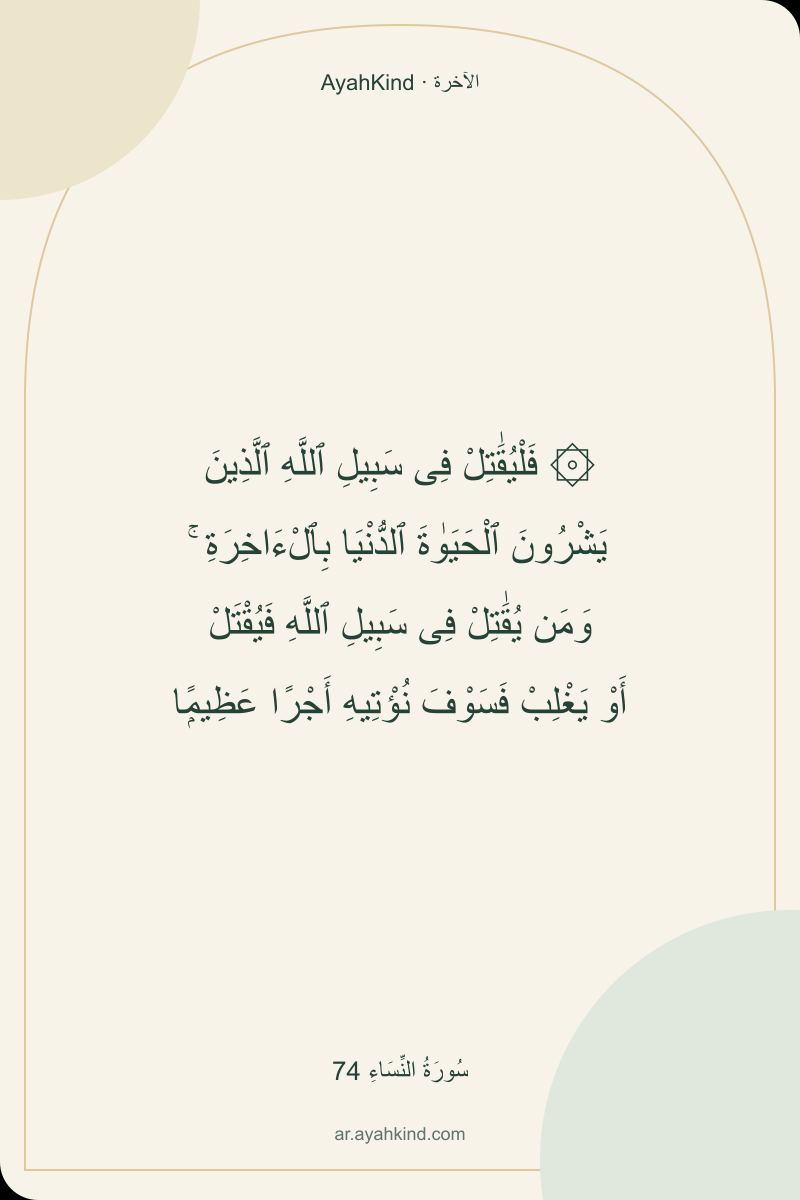 AyahKind · الآخرة
۞ فَلْيُقَٰتِلْ فِى سَبِيلِ ٱللَّهِ ٱلَّذِينَ
يَشْرُونَ ٱلْحَيَوٰةَ ٱلدُّنْيَا بِٱلْءَاخِرَةِ ۚ
وَمَن يُقَٰتِلْ فِى سَبِيلِ ٱللَّهِ فَيُقْتَلْ
أَوْ يَغْلِبْ فَسَوْفَ نُؤْتِيهِ أَجْرًا عَظِيمًۭا
سُورَةُ النِّسَاءِ 74
ar.ayahkind.com